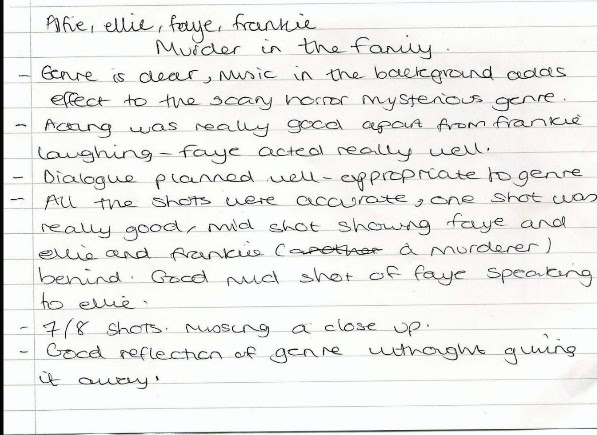 Alfie, ellie, faye, frankie
Murder in the family.
- Genre is clear, Music in the background adds
effect to the scary horror mysterious genre.
- Acting was really good apart from frankie
laughing - faye acted really well.
- Dialogue planned well - appropriate to genre
- All the shots were accurate, one shot was
really good, mid shot showing faye and
ellie and frankie (another a murderer)
behind. Good mid shot of faye speaking
to ellie.
- 7/8 shots. missing a close up.
- Good reflection of genre without giving
it away.